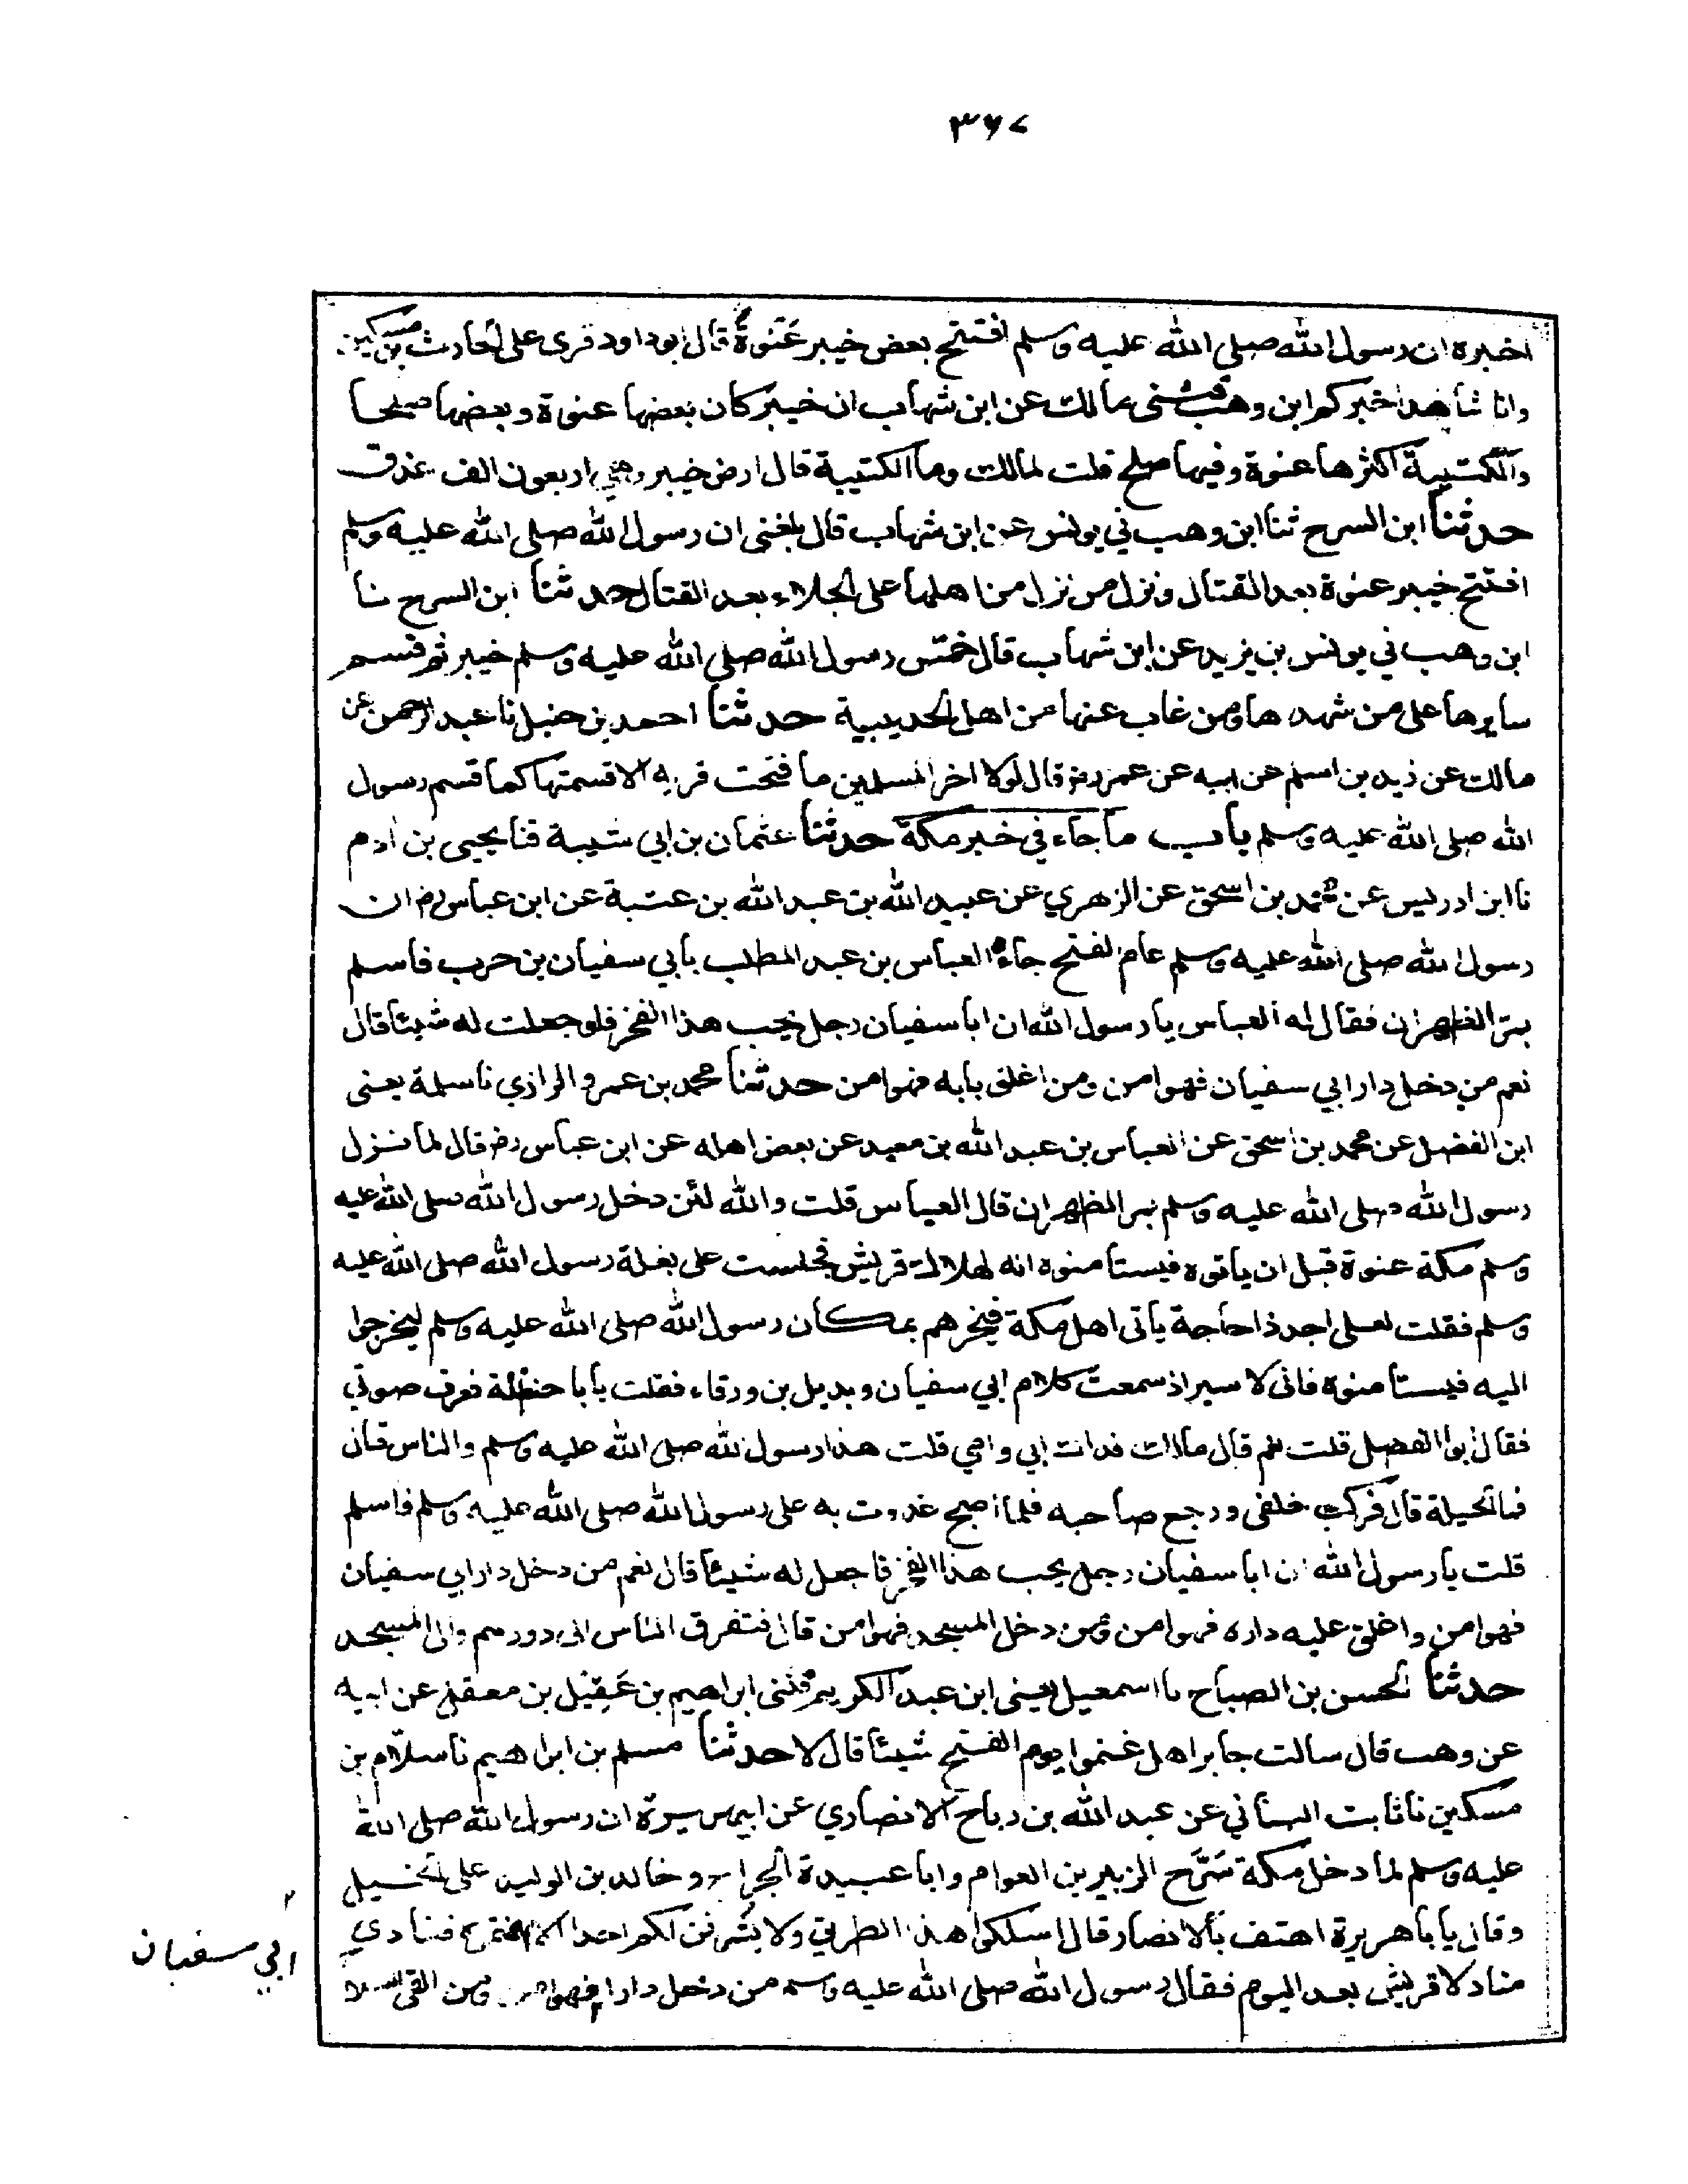 ٣٦٧
اخبره ان رسول الله صلى الله عليه وسلم افتتح بعض خيبر عَنْوةً قال ابو داود قرى على الحارث بن مسكين
وانا شاهد اخبركم ابن وهب ثنى مالك عن ابن شهاب ان خيبر كان بعضها عنوة وبعضها صلحا
والكتيبة اكثرها عنوة وفيها صلح قلت لمالك وما الكتيبة قال ارض خيبر وهي اربعون الف عذق
حدثنا ابن السرح ثنا ابن وهب ني يونس عن ابن شهاب قال بلغنى ان رسول الله صلى الله عليه وسلم
افتتح خيبر عنوة بعد القتال ونزل من نزل من اهلها على الجلاء بعد القتال حدثنا ابن السرح نا
ابن وهب ني يونس بن يزيد عن ابن شهاب قال خمّس رسول الله صلى الله عليه وسلم خيبر ثم قسم
سايرها على من شهدها ومن غاب عنها من اهل الحديبية حدثنا احمد بن حنبل نا عبد الرحمن عن
مالك عن زيد بن اسلم عن ابيه عن عمر رض قال لولا اخر المسلمين ما فتحت قرية الا قسمتها كما قسم رسول
الله صلى الله عليه وسلم باب ما جاء في خبر مكة حدثنا عثمان بن ابي شيبة ثنا يحيى بن ادم
نا ابن ادريس عن محمد بن اسحق عن الزهري عن عبيد الله بن عبد الله بن عتبة عن ابن عباس رض ان
رسول الله صلى الله عليه وسلم عام الفتح جاءه العباس بن عبد المطلب بابي سفيان بن حرب فاسلم
بمرّ الظهران فقال له العباس يا رسول الله ان ابا سفيان رجل يحب هذا الفخر فلو جعلت له شيئا قال
نعم من دخل دار ابي سفيان فهو امن ومن اغلق بابه فهو امن حدثنا محمد بن عمرو الرازي نا سلمة يعنى
ابن الفضل عن محمد بن اسحق عن العباس بن عبد الله بن معبد عن بعض اهله عن ابن عباس رض قال لما نزل
رسول الله صلى الله عليه وسلم بمر الظهران قال العباس قلت والله لئن دخل رسول الله صلى الله عليه
وسلم مكة عنوة قبل ان ياتوه فيستامنوه انه لهلاك قريش فجلست على بغلة رسول الله صلى الله عليه
وسلم فقلت لعلى اجد ذا حاجة ياتى اهل مكة فيخبرهم بمكان رسول الله صلى الله عليه وسلم ليخرجوا
اليه فيستامنوه فانى لاسير اذ سمعت كلام ابي سفيان وبديل بن ورقاء فقلت يا با حنظلة فعرف صوتي
فقال ابو الفضل قلت نعم قال مالك فداك ابي وامي قلت هذا رسول الله صلى الله عليه وسلم والناس قال
فما الحيلة قال فركب خلفى ورجع صاحبه فلما اصبح غدوت به على رسول الله صلى الله عليه وسلم فاسلم
قلت يا رسول الله ان ابا سفيان رجل يحب هذا الفخر فاجعل له شيئا قال نعم من دخل دار ابي سفيان
فهو امن واغلق عليه داره فهو امن ومن دخل المسجد فهو امن قال فتفرق الناس الى دورهم والى المسجد
حدثنا الحسن بن الصباح نا اسمعيل يعنى ابن عبد الكريم ثنى ابراهيم بن عَقِيْل بن معقل عن ابيه
عن وهب قال سالت جابرا هل غنموا يوم الفتح شيئا قال لا حدثنا مسلم بن ابراهيم نا سلّام بن
مسكين نا ثابت البناني عن عبد الله بن رباح الانصاري عن ابي هريرة ان رسول الله صلى الله
عليه وسلم لما دخل مكة سَرَّح الزبير بن العوام وابا عبيدة الجراح وخالد بن الوليد على الخيل
وقال يا با هريرة اهتف بالانصار قال اسلكوا هذا الطريق ولا يشرفن لكم احد الا انمتموه فنادي
مناد لا قريش بعد اليوم فقال رسول الله صلى الله عليه وسلم من دخل دارا فهو امن ومن القى السلا
ابي سفيان